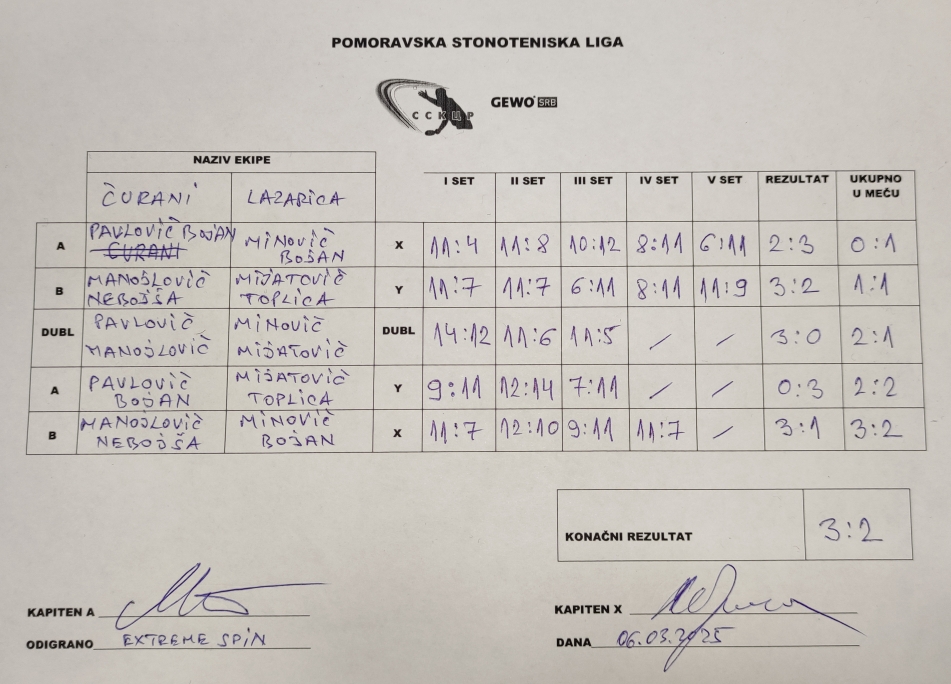 POMORAVSKA STONOTENISKA LIGA
ССКЦР
GEWO SRB
NAZIV EKIPE
ČURANI LAZARICA I SET II SET III SET IV SET V SET REZULTAT UKUPNO U MEČU
A PAVLOVIČ BOJAN ČURANI MINOVIČ BOJAN X 11:4 11:8 10:12 8:11 6:11 2:3 0:1
B MANOJLOVIČ NEBOJŠA MIJATOVIČ TOPLICA Y 11:7 11:7 6:11 8:11 11:9 3:2 1:1
DUBL PAVLOVIČ MANOJLOVIČ MINOVIČ MIJATOVIČ DUBL 14:12 11:6 11:5 / / 3:0 2:1
A PAVLOVIČ BOJAN MIJATOVIČ TOPLICA Y 9:11 12:14 7:11 / / 0:3 2:2
B MANOJLOVIČ NEBOJŠA MINOVIČ BOJAN X 11:7 12:10 9:11 11:7 / 3:1 3:2
KONAČNI REZULTAT 3:2
KAPITEN A KAPITEN X
ODIGRANO EXTREME SPIN DANA 06.03.2025